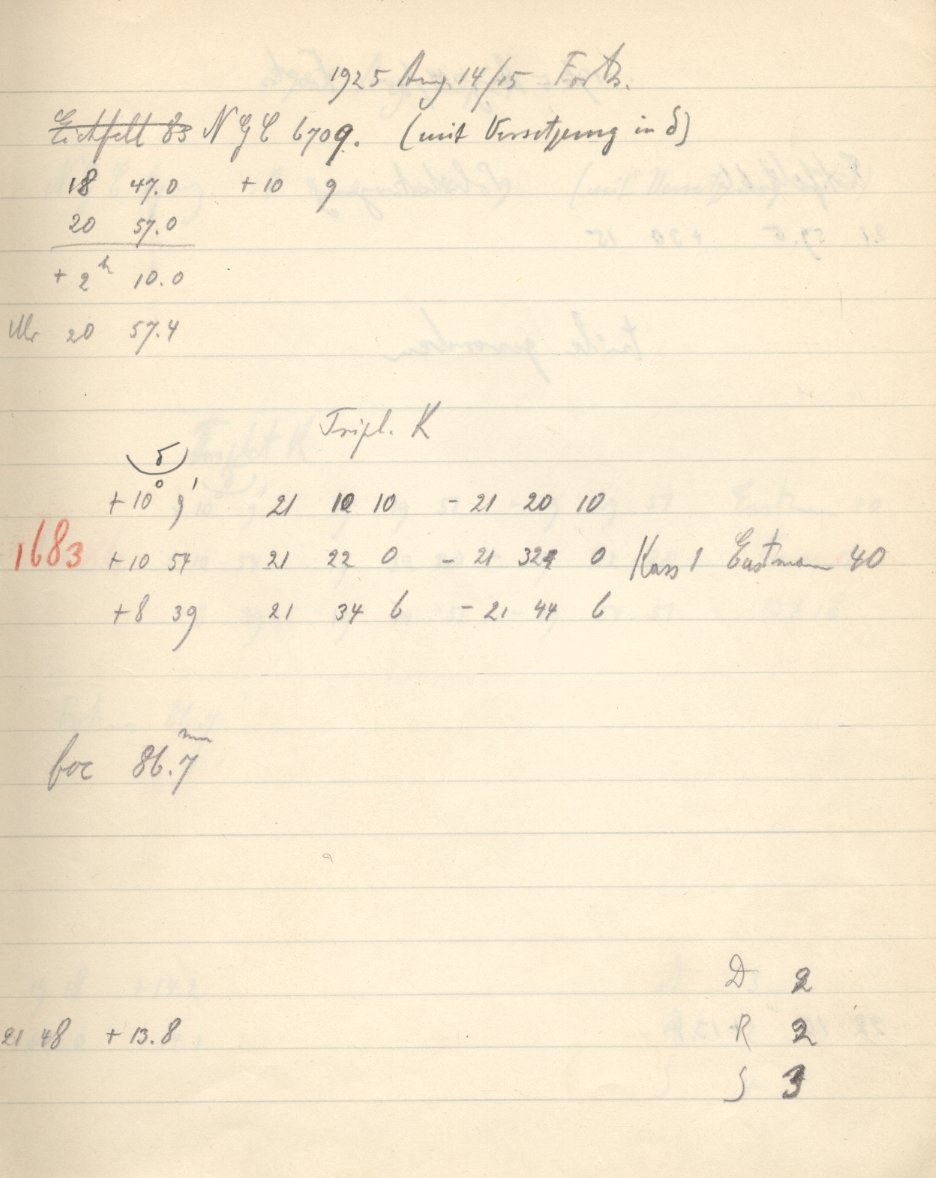 1925 Aug 14/15 Forts.
Eichfeld 83 NGC 6709. (mit Versetzung in δ)
18 47.0 +10 9
20 57.0
+ 2h 10.0
Uhr 20 57.4
Tripl. K
δ
+10° 9' 21 10 10 – 21 20 10
1683 +10 54 21 22 0 – 21 32 0 Kass 1 Eastman 40
+8 39 21 34 6 – 21 44 6
foc 86.7 mm
D 2
21 48 +13.8 R 2
S 3